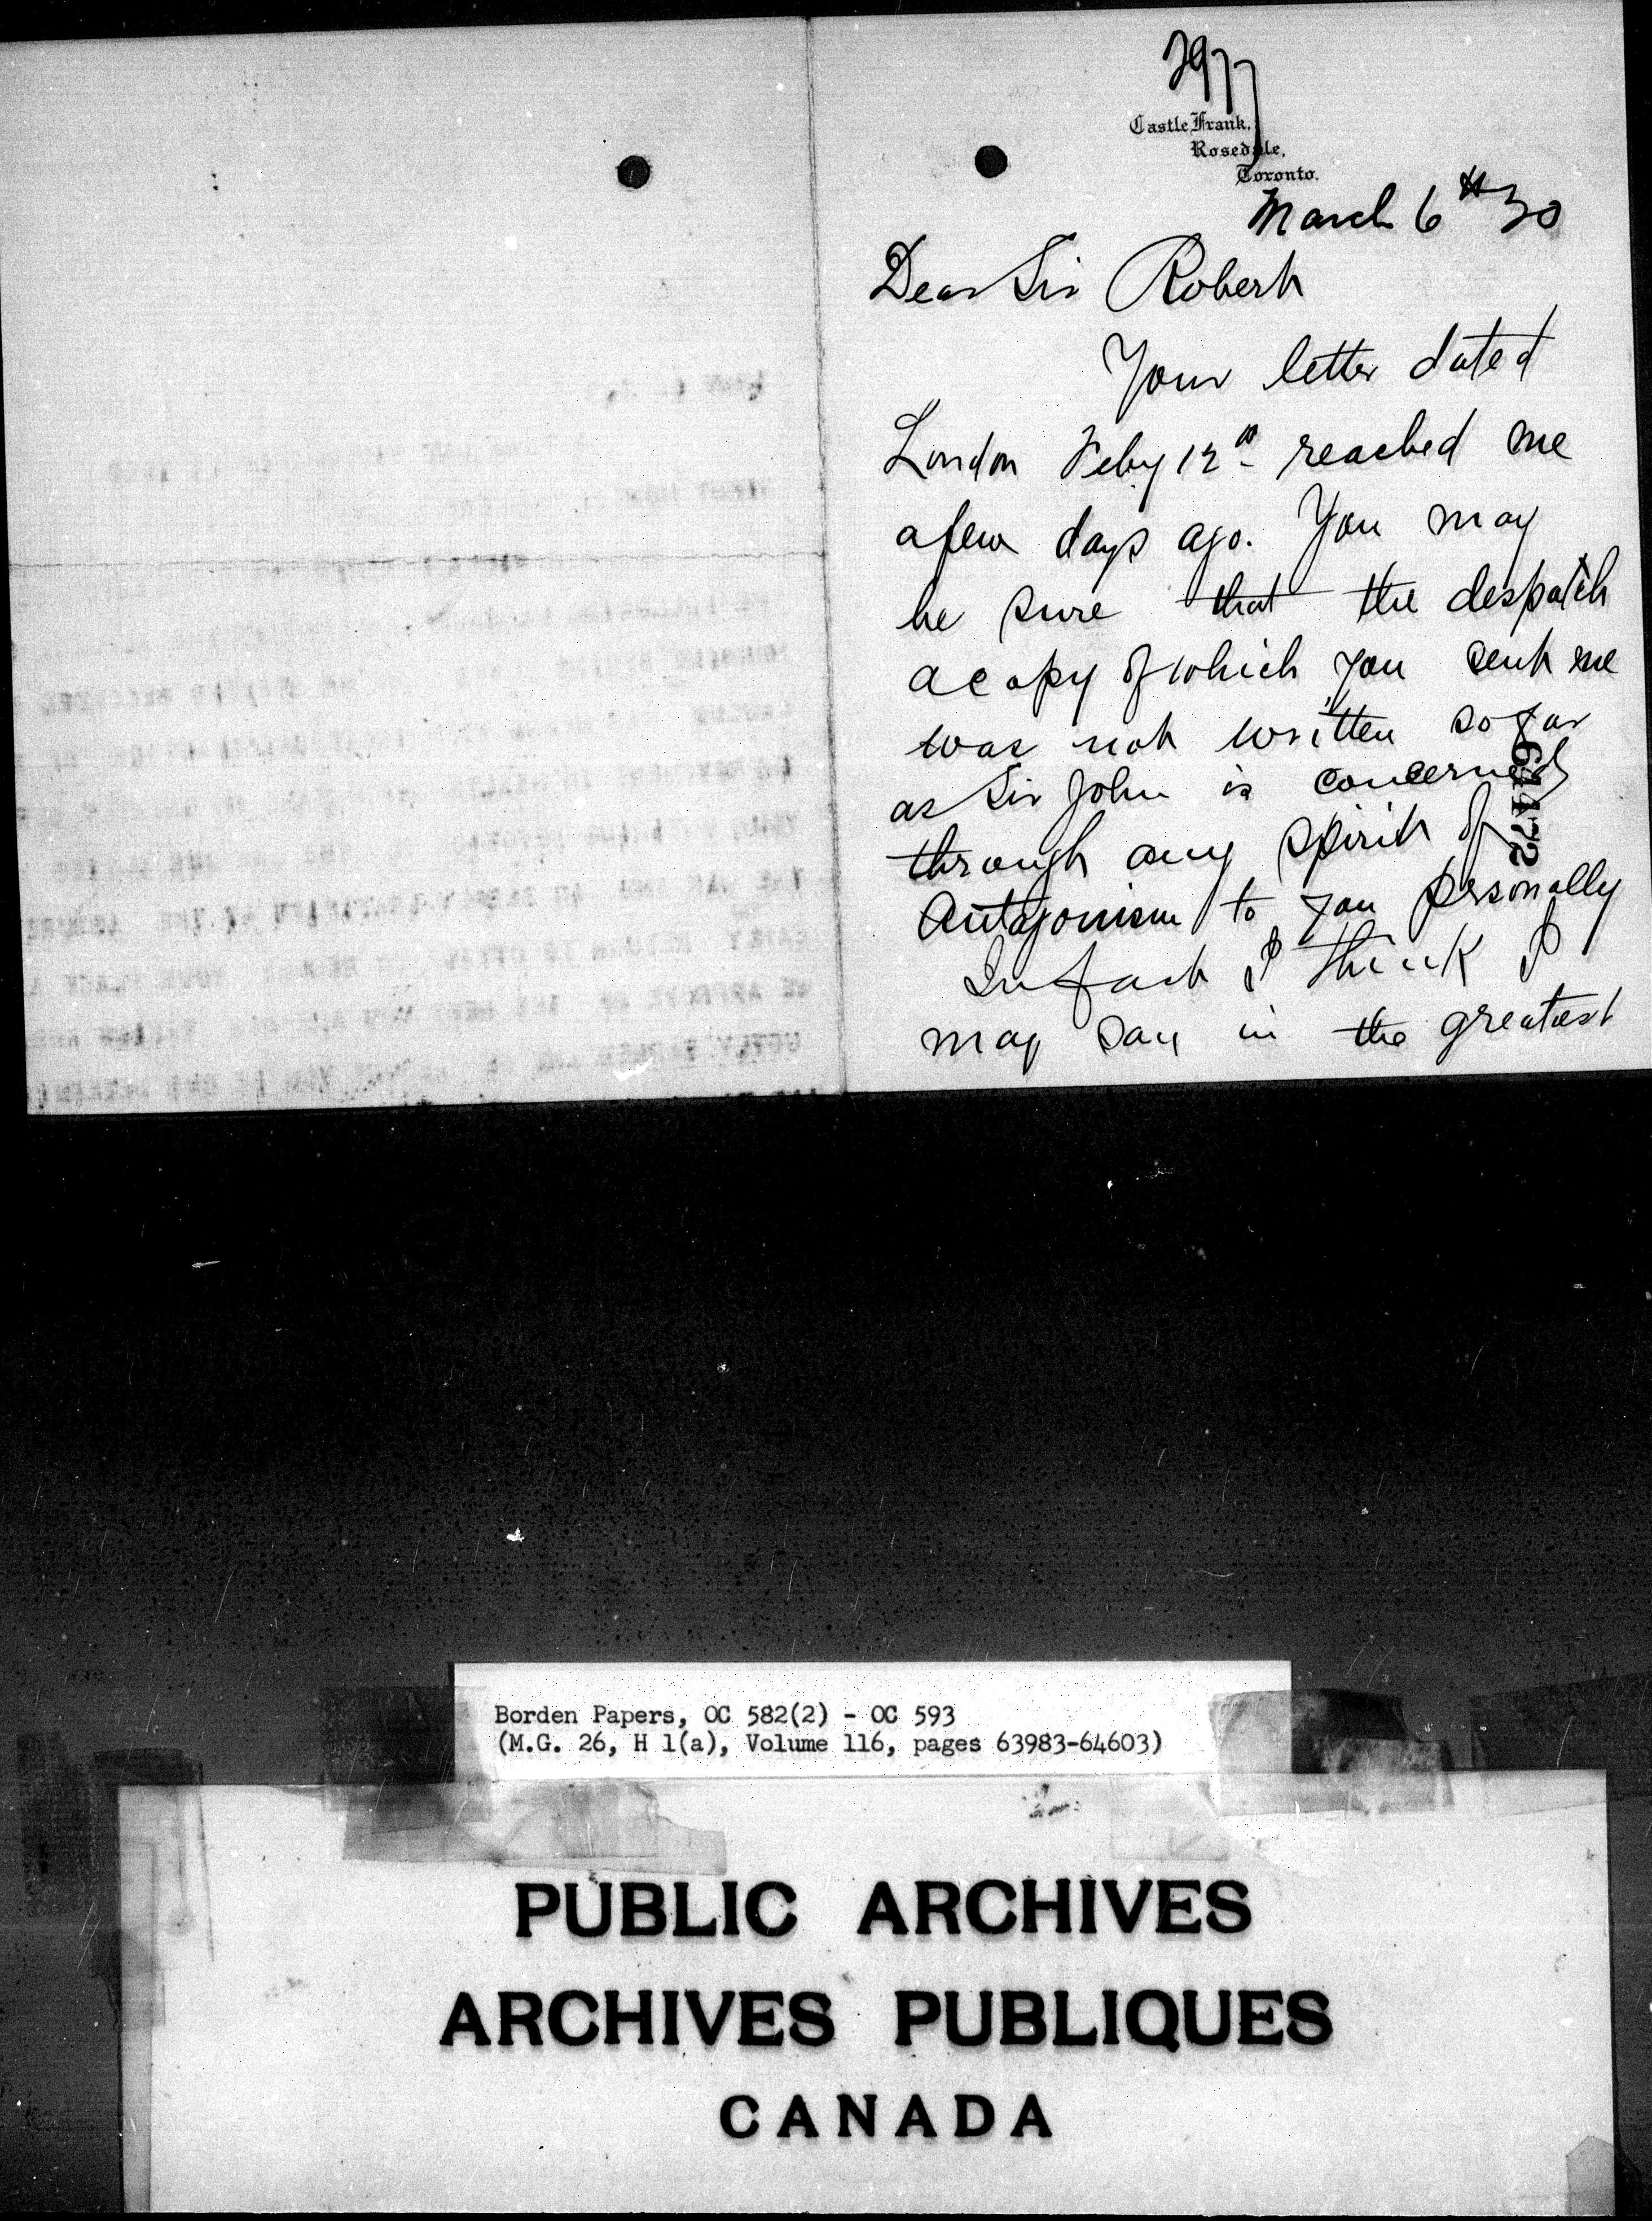 3977
Castle Frank,
Rosedale,
Toronto.
March 6th 20
Dear Sir Robert
Your letter dated
London Feby 12th reached me
a few days ago. You may
be sure that the despatch
a copy of which you sent me
was not written so far
as Sir John is concerned
through any spirit of
Antagonism to you personally
In fact I think I
may say in the greatest
64472
Borden Papers, OC 582(2) - OC 593
(M.G. 26, H 1(a), Volume 116, pages 63983-64603)
PUBLIC ARCHIVES
ARCHIVES PUBLIQUES
CANADA